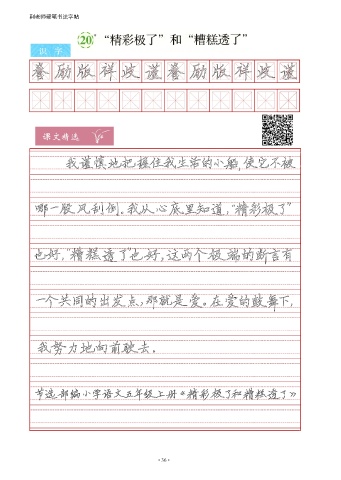 荆老师硬笔书法字帖
20 “精彩极了”和“糟糕透了”
识 字
誊 励 版 祥 歧 谨 誊 励 版 祥 歧 谨
课文精选
我谨慎地把握住我生活的小船,使它不被
哪一股风刮倒。我从心底里知道,“精彩极了”
也好,“糟糕透了”也好,这两个极端的断言有
一个共同的出发点,那就是爱。在爱的鼓舞下,
我努力地向前驶去。
节选部编小学语文五年级上册《精彩极了和糟糕透了》
·36·